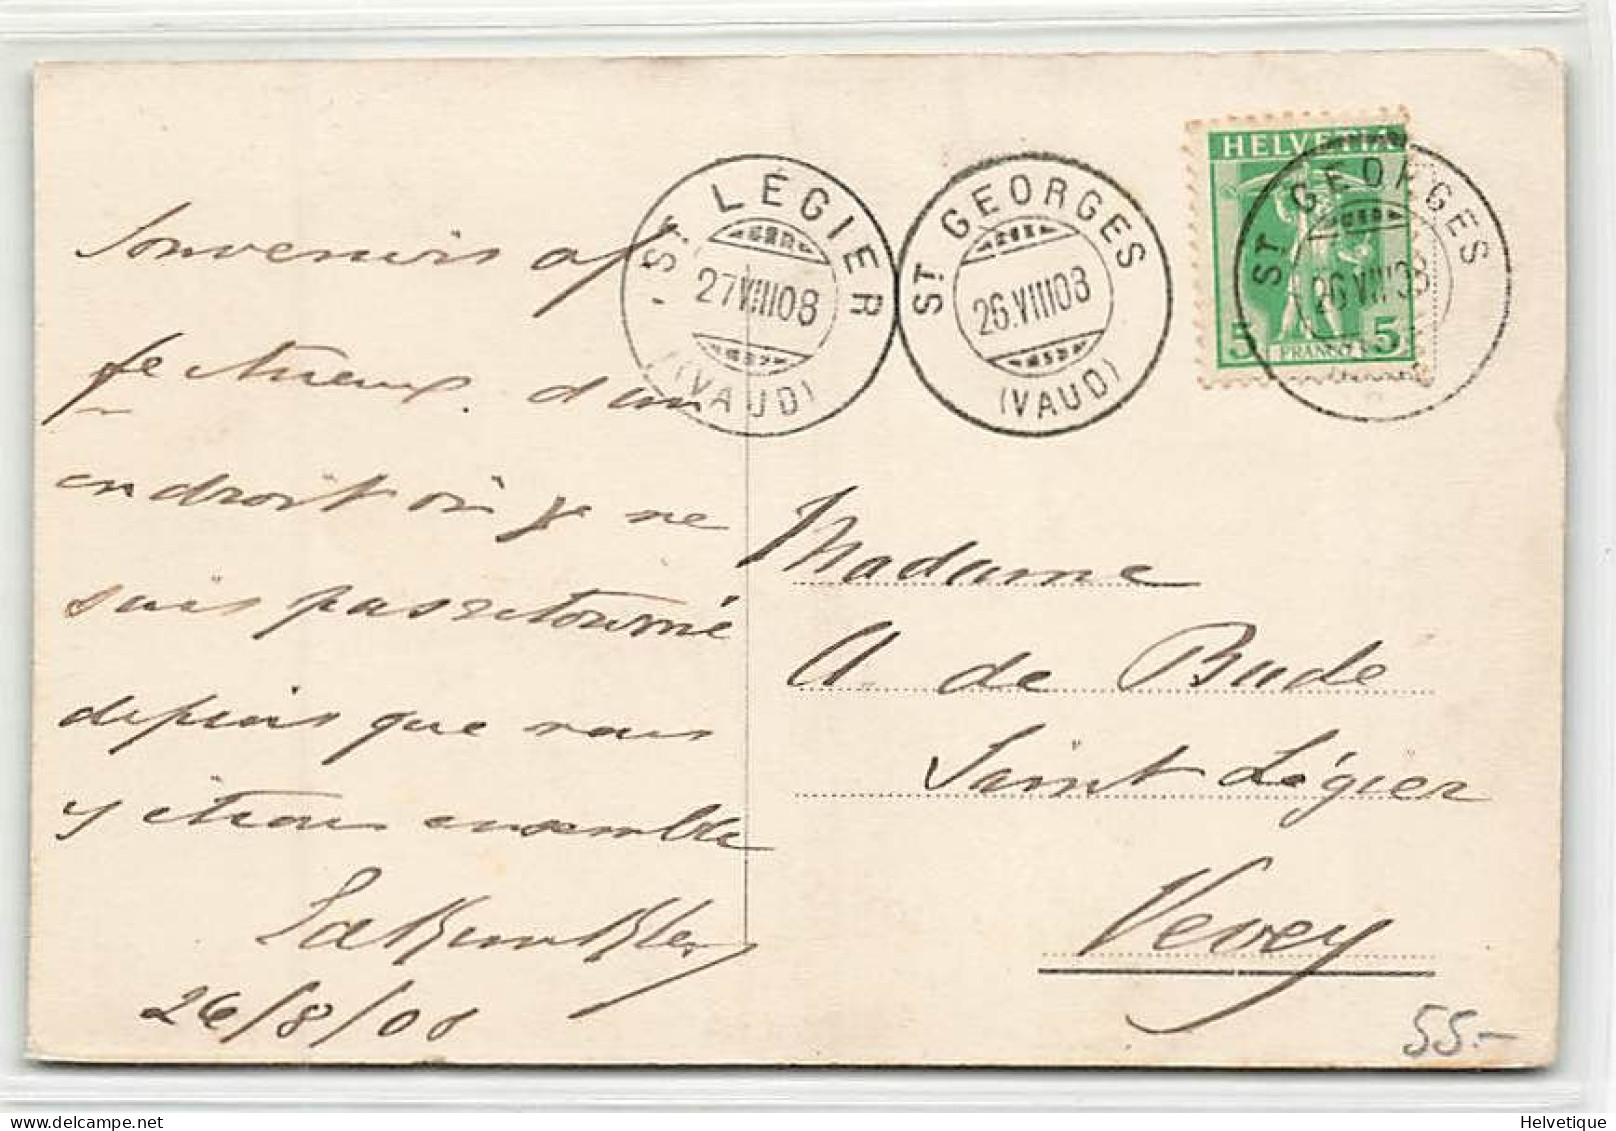 Souvenirs af
fectueux d'un
endroit où je ne
suis pas retourné
depuis que nous
y étions ensemble
26/8/08
ST LÉGIER
27 VIII 08
(VAUD)
ST GEORGES
26.VIII 08
(VAUD)
HELVETIA
5 FRANCO 5
ST GEORGES
26 VIII 08
Madame
A. de Bude
Saint Légier
Vevey
55.-
delcampe.net
Helvetique